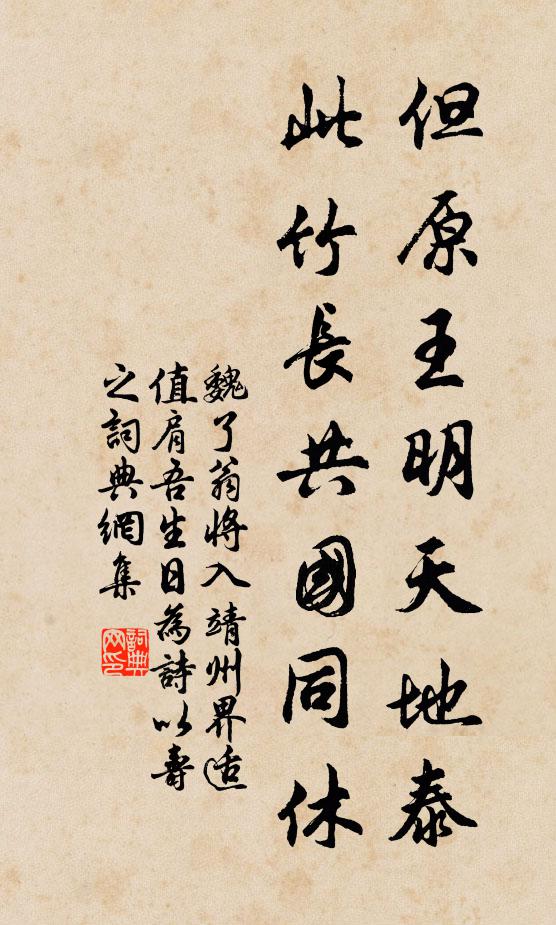 但原王明天地泰
此竹長共國同休
魏了翁將入靖州界适
值肩吾生日為詩以壽
之詞典網集
詞典
网印